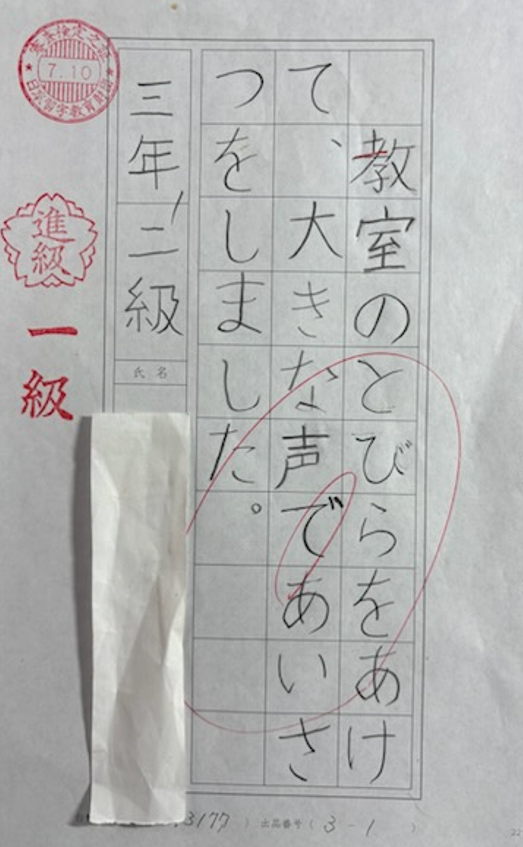 教室のとびらをあけ
て、大きな声であいさ
つをしました。
三年 二級
氏名
進級
一級
7.10
3177 ) 出品番号 ( 3-1 )